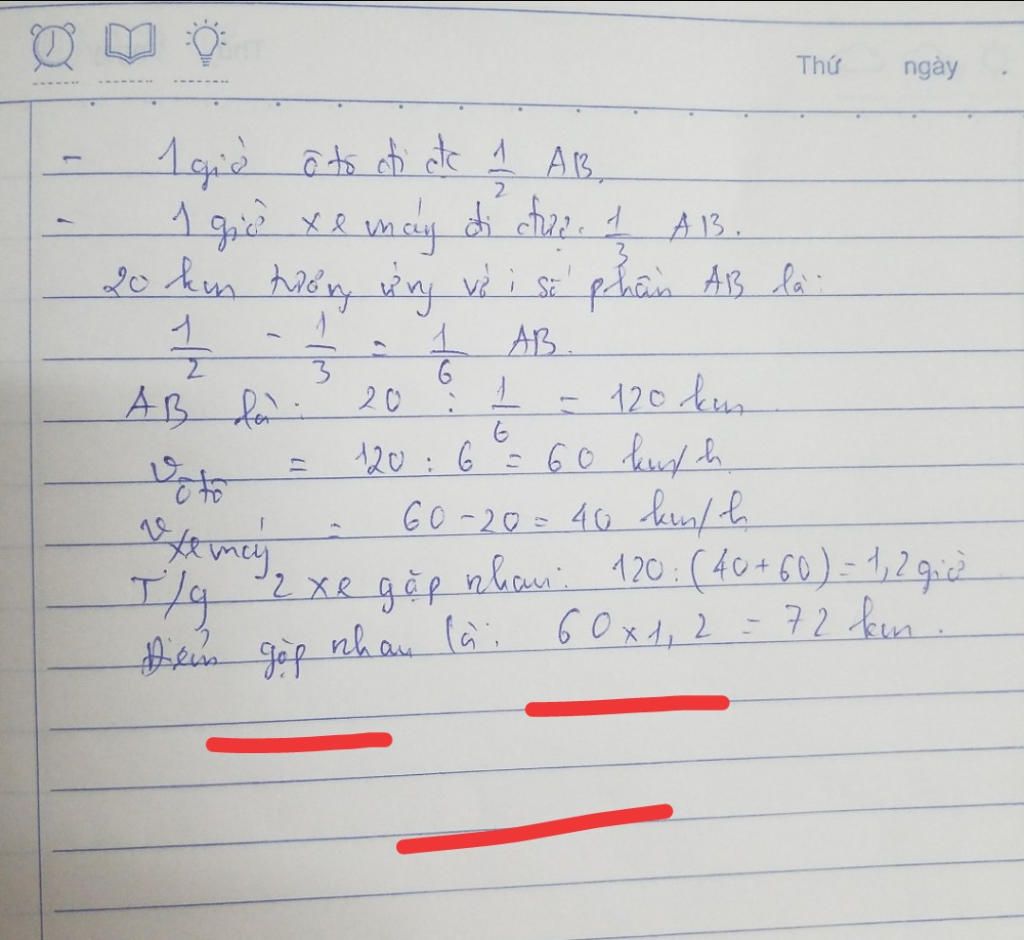 Thứ ngày .
- 1 giờ ô tô đi đc 1/2 AB.
- 1 giờ xe máy đi được 1/3 AB.
20 km tương ứng với số phần AB là:
1/2 - 1/3 = 1/6 AB.
AB là: 20 : 1/6 = 120 km
v ô tô = 120 : 6 = 60 km/h
v xe máy = 60 - 20 = 40 km/h
T/g 2 xe gặp nhau: 120 : (40 + 60) = 1,2 giờ
Điểm gặp nhau là: 60 x 1,2 = 72 km.